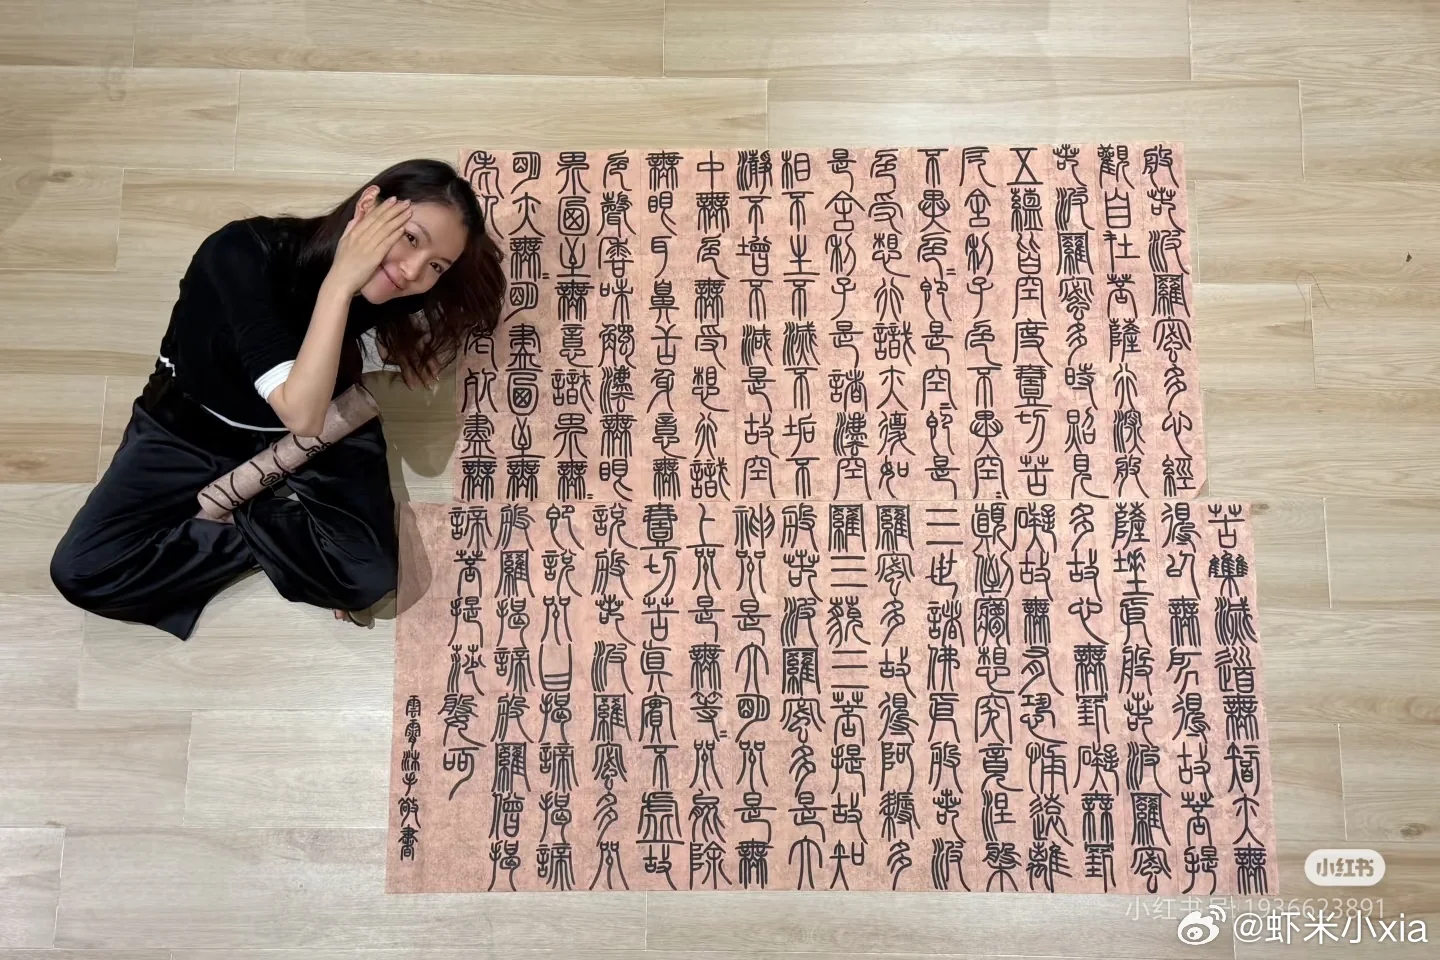 般若波羅蜜多心經
觀自在菩薩行深般
若波羅蜜多時照見
五蘊皆空度壹切苦
厄舍利子色不異空=
不異色=即是空=即是
色受想行識亦復如
是舍利子是諸法空
相不生不滅不垢不
瀞不增不減是故空
中無色無受想行識
無眼耳鼻舌身意無
色聲香味觸法無眼
界乃至無意識界無=
明亦無=明盡乃至無
老死盡無
苦集滅道無智亦無
得以無所得故菩提
薩埵依般若波羅蜜
多故心無罣礙無罣
礙故無有恐怖遠離
顛倒夢想究竟涅槃
三世諸佛依般若波
羅蜜多故得阿耨多
羅三藐三菩提故知
般若波羅蜜多是大
神咒是大明咒是無
上咒是無等=咒能除
壹切苦真實不虛故
說般若波羅蜜多咒
即說咒曰揭諦揭諦
般羅揭諦般羅僧揭
諦菩提莎婆訶
沐手敬書
小红书
小红书号: 1936623891
@虾米小xia